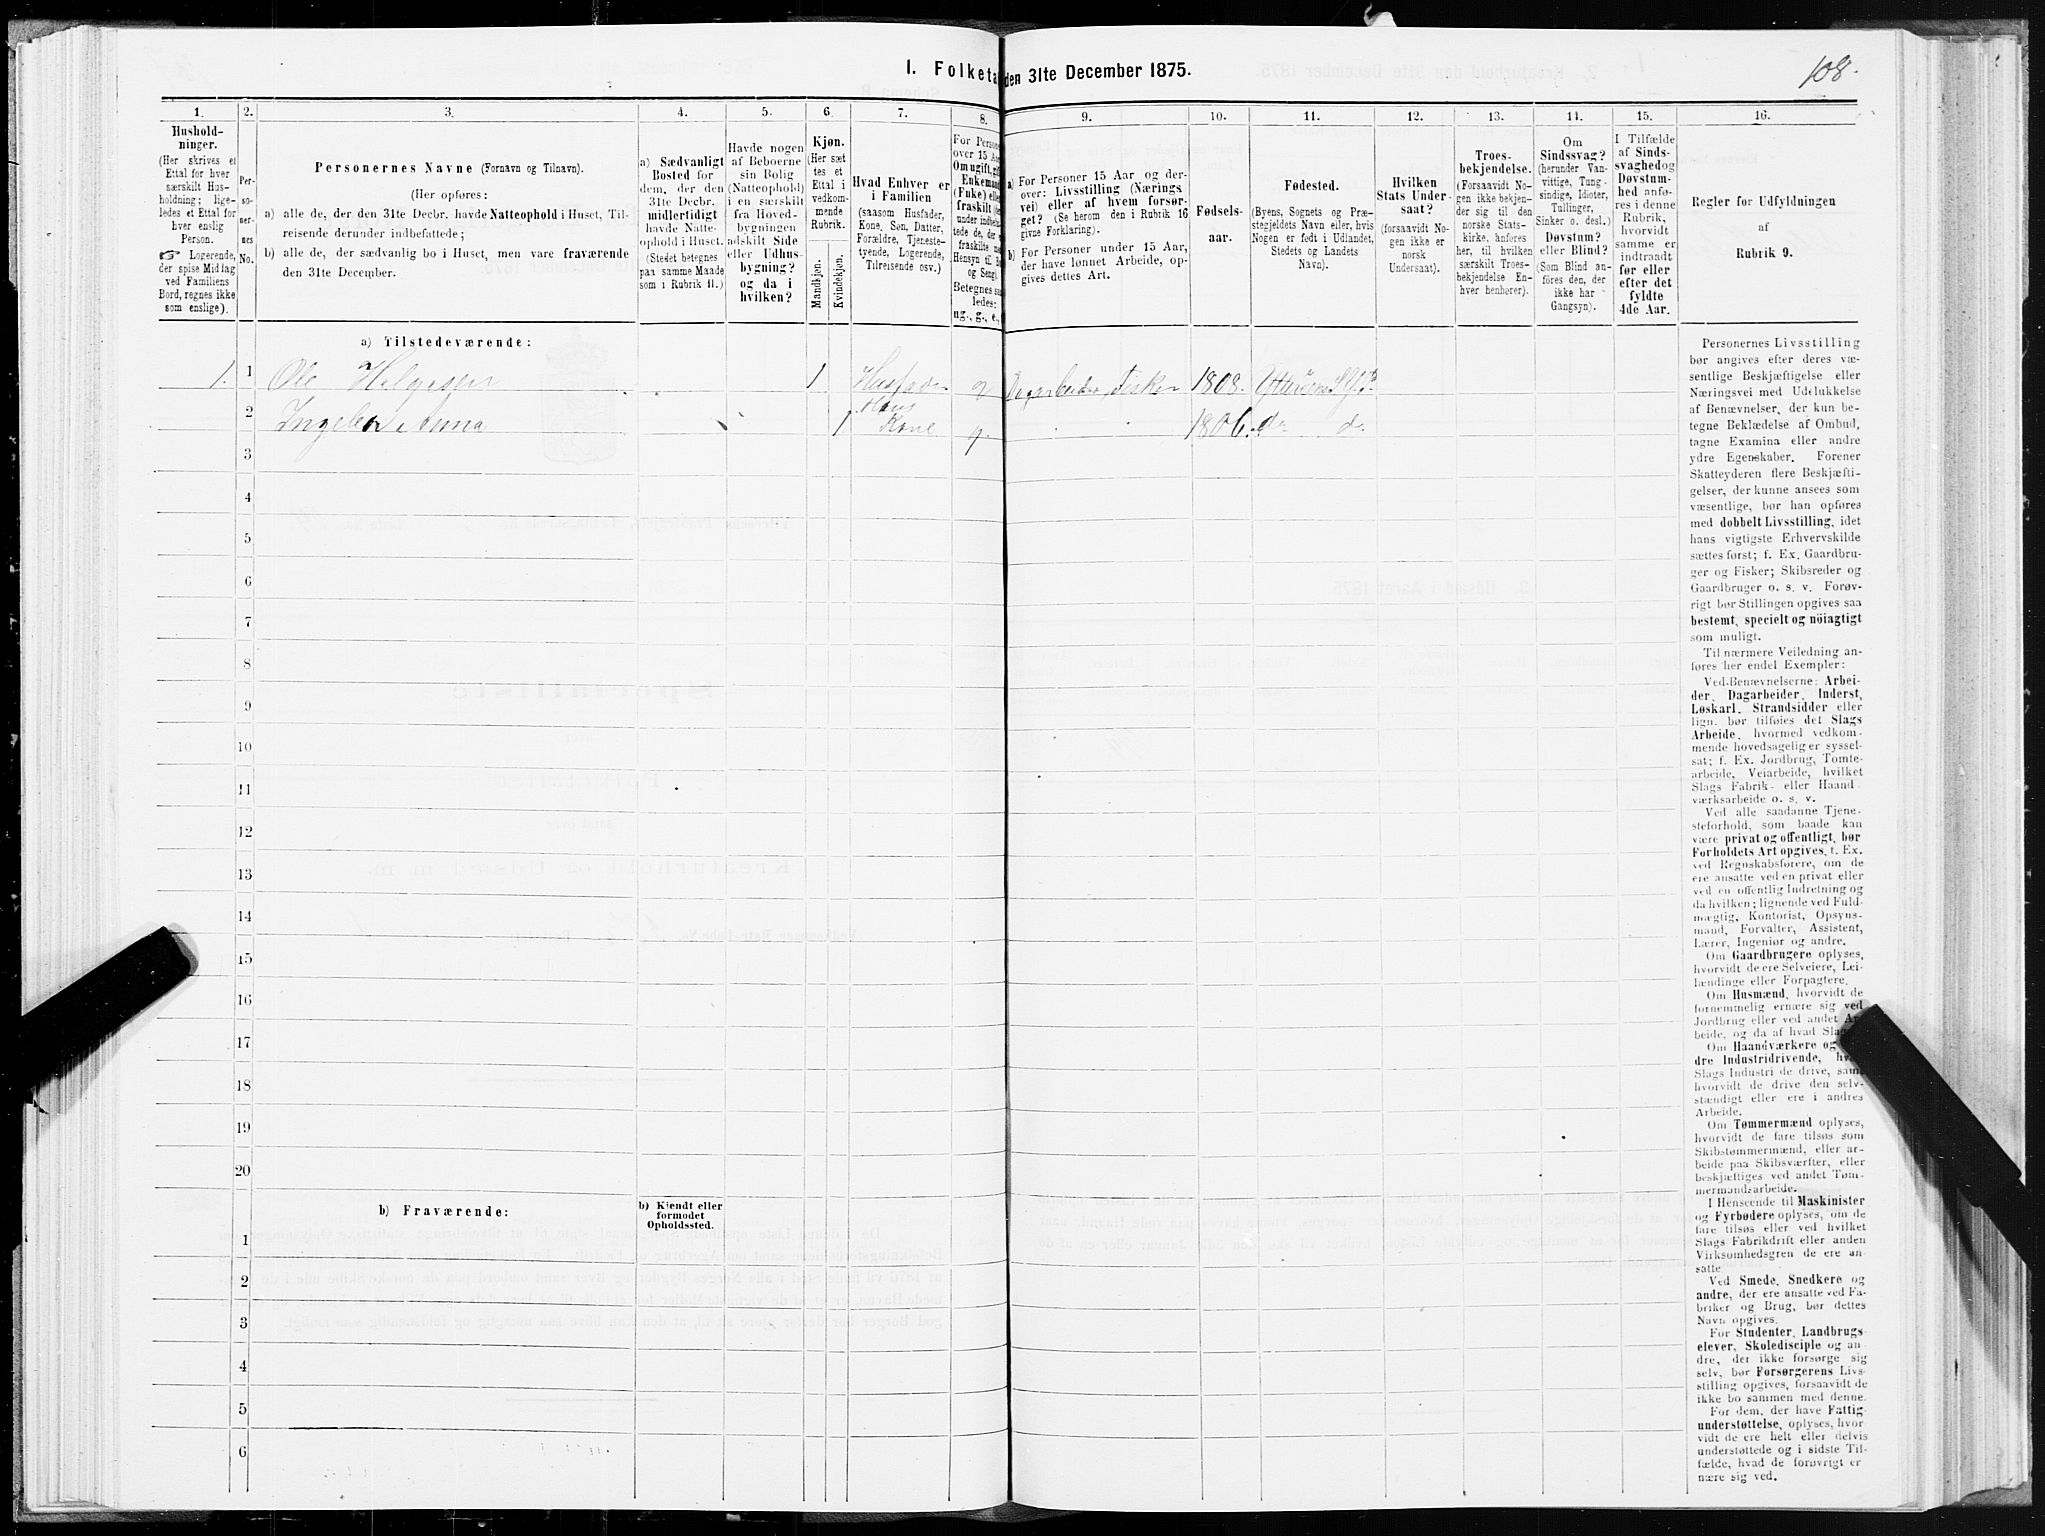 108.
I. Folketa den 31te December 1875.
1. 2. 3. 4. 5. 6. 7. 8. 9. 10. 11. 12. 13. 14. 15. 16.
Hushold-
ninger.
(Her skrives et
Ettal for hver
særskilt Hus-
holdning; lige-
ledes et Ettal for
hver enslig
Person.
☞ Logerende,
der spise Middag
ved Familiens
Bord, regnes ikke
som enslige).
Per-
so-
ner-
nes
No.
Personernes Navne (Fornavn og Tilnavn).
(Her opføres:
a) alle de, der den 31te Decbr. havde Natteophold i Huset, Til-
reisende derunder indbefattede;
b) alle de, der sædvanlig bo i Huset, men vare fraværende
den 31te December.
a) Sædvanligt
Bosted for
dem, der den
31te Decbr.
midlertidigt
havde Natte-
ophold i Huset.
(Stedet betegnes
paa samme Maade
som i Rubrik 11.)
Havde nogen
af Beboerne
sin Bolig
(Natteophold)
i en særskilt
fra Hoved-
bygningen
adskilt Side
eller Udhus-
bygning?
og da i
hvilken?
Kjøn.
(Her sæt
tes et
Ettal i
vedkom-
mende
Rubrik.
Mandkjøn.
Kvindekjøn.
Hvad Enhver er
i Familien
(saasom Husfader,
Kone, Søn, Datter,
Forældre, Tjeneste-
tyende, Logerende,
Tilreisende osv.)
For Persone
over 15 Aa
Om ugift, gif
Enkemand
(Enke) elle
fraskilt
ledes:
ug., g., e.,
a) For Personer 15 Aar og der-
over: Livsstilling (Nærings
vei) eller af hvem forsør-
get? (Se herom den i Rubrik 16
givne Forklaring).
b) For Personer under 15 Aar,
der have lønnet Arbeide, op-
gives dettes Art.
Fødsels-
aar.
Fødested.
(Byens, Sognets og Præ-
stegjeldets Navn eller, hvis
Nogen er født i Udlandet,
Stedets og Landets
Navn).
Hvilken
Stats Under-
saat?
(forsaavidt No-
gen ikke er
norsk
Undersaat).
Troes-
bekjendelse.
(Forsaavidt No-
gen ikke bekjen-
der sig til den
norske Stats-
kirke, anføres
her, til hvilken
særskilt Troes-
bekjendelse En-
hver henhører).
Om
Sindssvag?
(herunder Van-
vittige, Tung-
sindige, Idioter,
Tullinger,
Sinker o. desl.)
Døvstum?
eller Blind?
(Som Blind an-
føres den, der
ikke har
Gangsyn).
I Tilfælde
af Sinds-
svaghedog
Døvstum-
hed anfø-
res i denne
Rubrik,
hvorvidt
samme er
indtraadt
før eller
efter det
fyldte
4de Aar.
Regler for Udfyldningen
af
Rubrik 9.
a) Tilstedeværende:
1. 1 Ole Helgesen 1 Husfader g Dagarbeider, Fisker 1808.
2 Ingebor Anna 1 Hans Kone g. 1806. do do
3
4
5
6
7
8
9
10
11
12
13
14
15
16
17
18
19
20
b) Fraværende:
b) Kjendt eller
formodet
Opholdssted.
1
2
3
4
5
6
Personernes Livsstilling
bør angives efter deres væ-
sentlige Beskjæftigelse eller
Næringsvei med Udelukkelse
af Benævnelser, der kun be-
tegne Beklædelse af Ombud,
tagne Examina eller andre
ydre Egenskaber. Forener
Skatteyderen flere Beskjæfti-
gelser, der kunne ansees som
væsentlige, bør han opføres
med dobbelt Livsstilling, idet
hans vigtigste Erhvervskilde
sættes først; f. Ex. Gaardbru-
ger og Fisker; Skibsreder og
Gaardbruger o. s. v. Forøv-
rigt bør Stillingen opgives saa
bestemt, specielt og nöiagtigt
som muligt.
Til nærmere Veiledning an-
føres her endel Exempler:
Ved Benævnelserne: Arbei-
der, Dagarbeider, Inderst,
Løskarl, Strandsidder eller
lign. bør tilføies det Slags
Arbeide, hvormed vedkom-
mende hovedsagelig er syssel-
sat; f. Ex. Jordbrug, Tomte-
arbeide, Veiarbeide, hvilket
Slags Fabrik- eller Haand
værksarbeide o. s. v.
Ved alle saadanne Tjene-
steforhold, som baade kan
være privat og offentligt, bør
Forholdets Art opgives, t. Ex.
ved Regnskabsførere, om de
ere ansatte ved en privat eller
ved en offentlig Indretning og
da hvilken; lignende ved Fuld-
mægtig, Kontorist, Opsyns-
mand, Forvalter, Assistent,
Lærer, Ingeniør og andre.
Om Gaardbrugere oplyses,
hvorvidt de ere Selveiere, Lei-
lændinge eller Forpagtere.
Om Husmænd, hvorvidt de
fornemmelig ernære sig ved
Jordbrug eller ved andet Ar
beide, og da af hvad Slags
Om Haandværkere og
dre Industridrivende, hv
Slags Industri de drive, samt
hvorvidt de drive den selv-
stændigt eller ere i andres
Arbeide.
Om Tømmermænd oplyses,
hvorvidt de fare tilsøs som
Skibstømmermænd, eller ar-
beide paa Skibsværfter, eller
beskjæftiges ved andet Tøm-
mermandsarbeide.
I Henseende til Maskinister
og Fyrbødere oplyses, om de
fare tilsøs eller ved hvilket
Slags Fabrikdrift eller anden
Virksomhedsgren de ere an-
satte.
Ved Smede, Snedkere og
andre, der ere ansatte ved Fa-
briker og Brug, bør dettes
Navn opgives.
For Studenter, Landbrugs-
elever, Skoledisciple og an-
dre, der ikke forsørge sig
selv, bør Forsørgerens Livs-
stilling opgives, forsaavidt de
ikke bo sammen med denne.
For dem, der have Fattig-
understøttelse, oplyses, hvor-
vidt de ere helt eller delvis
understøttede og i sidste Til-
fælde, hvad de forøvrigt er-
nære sig ved.